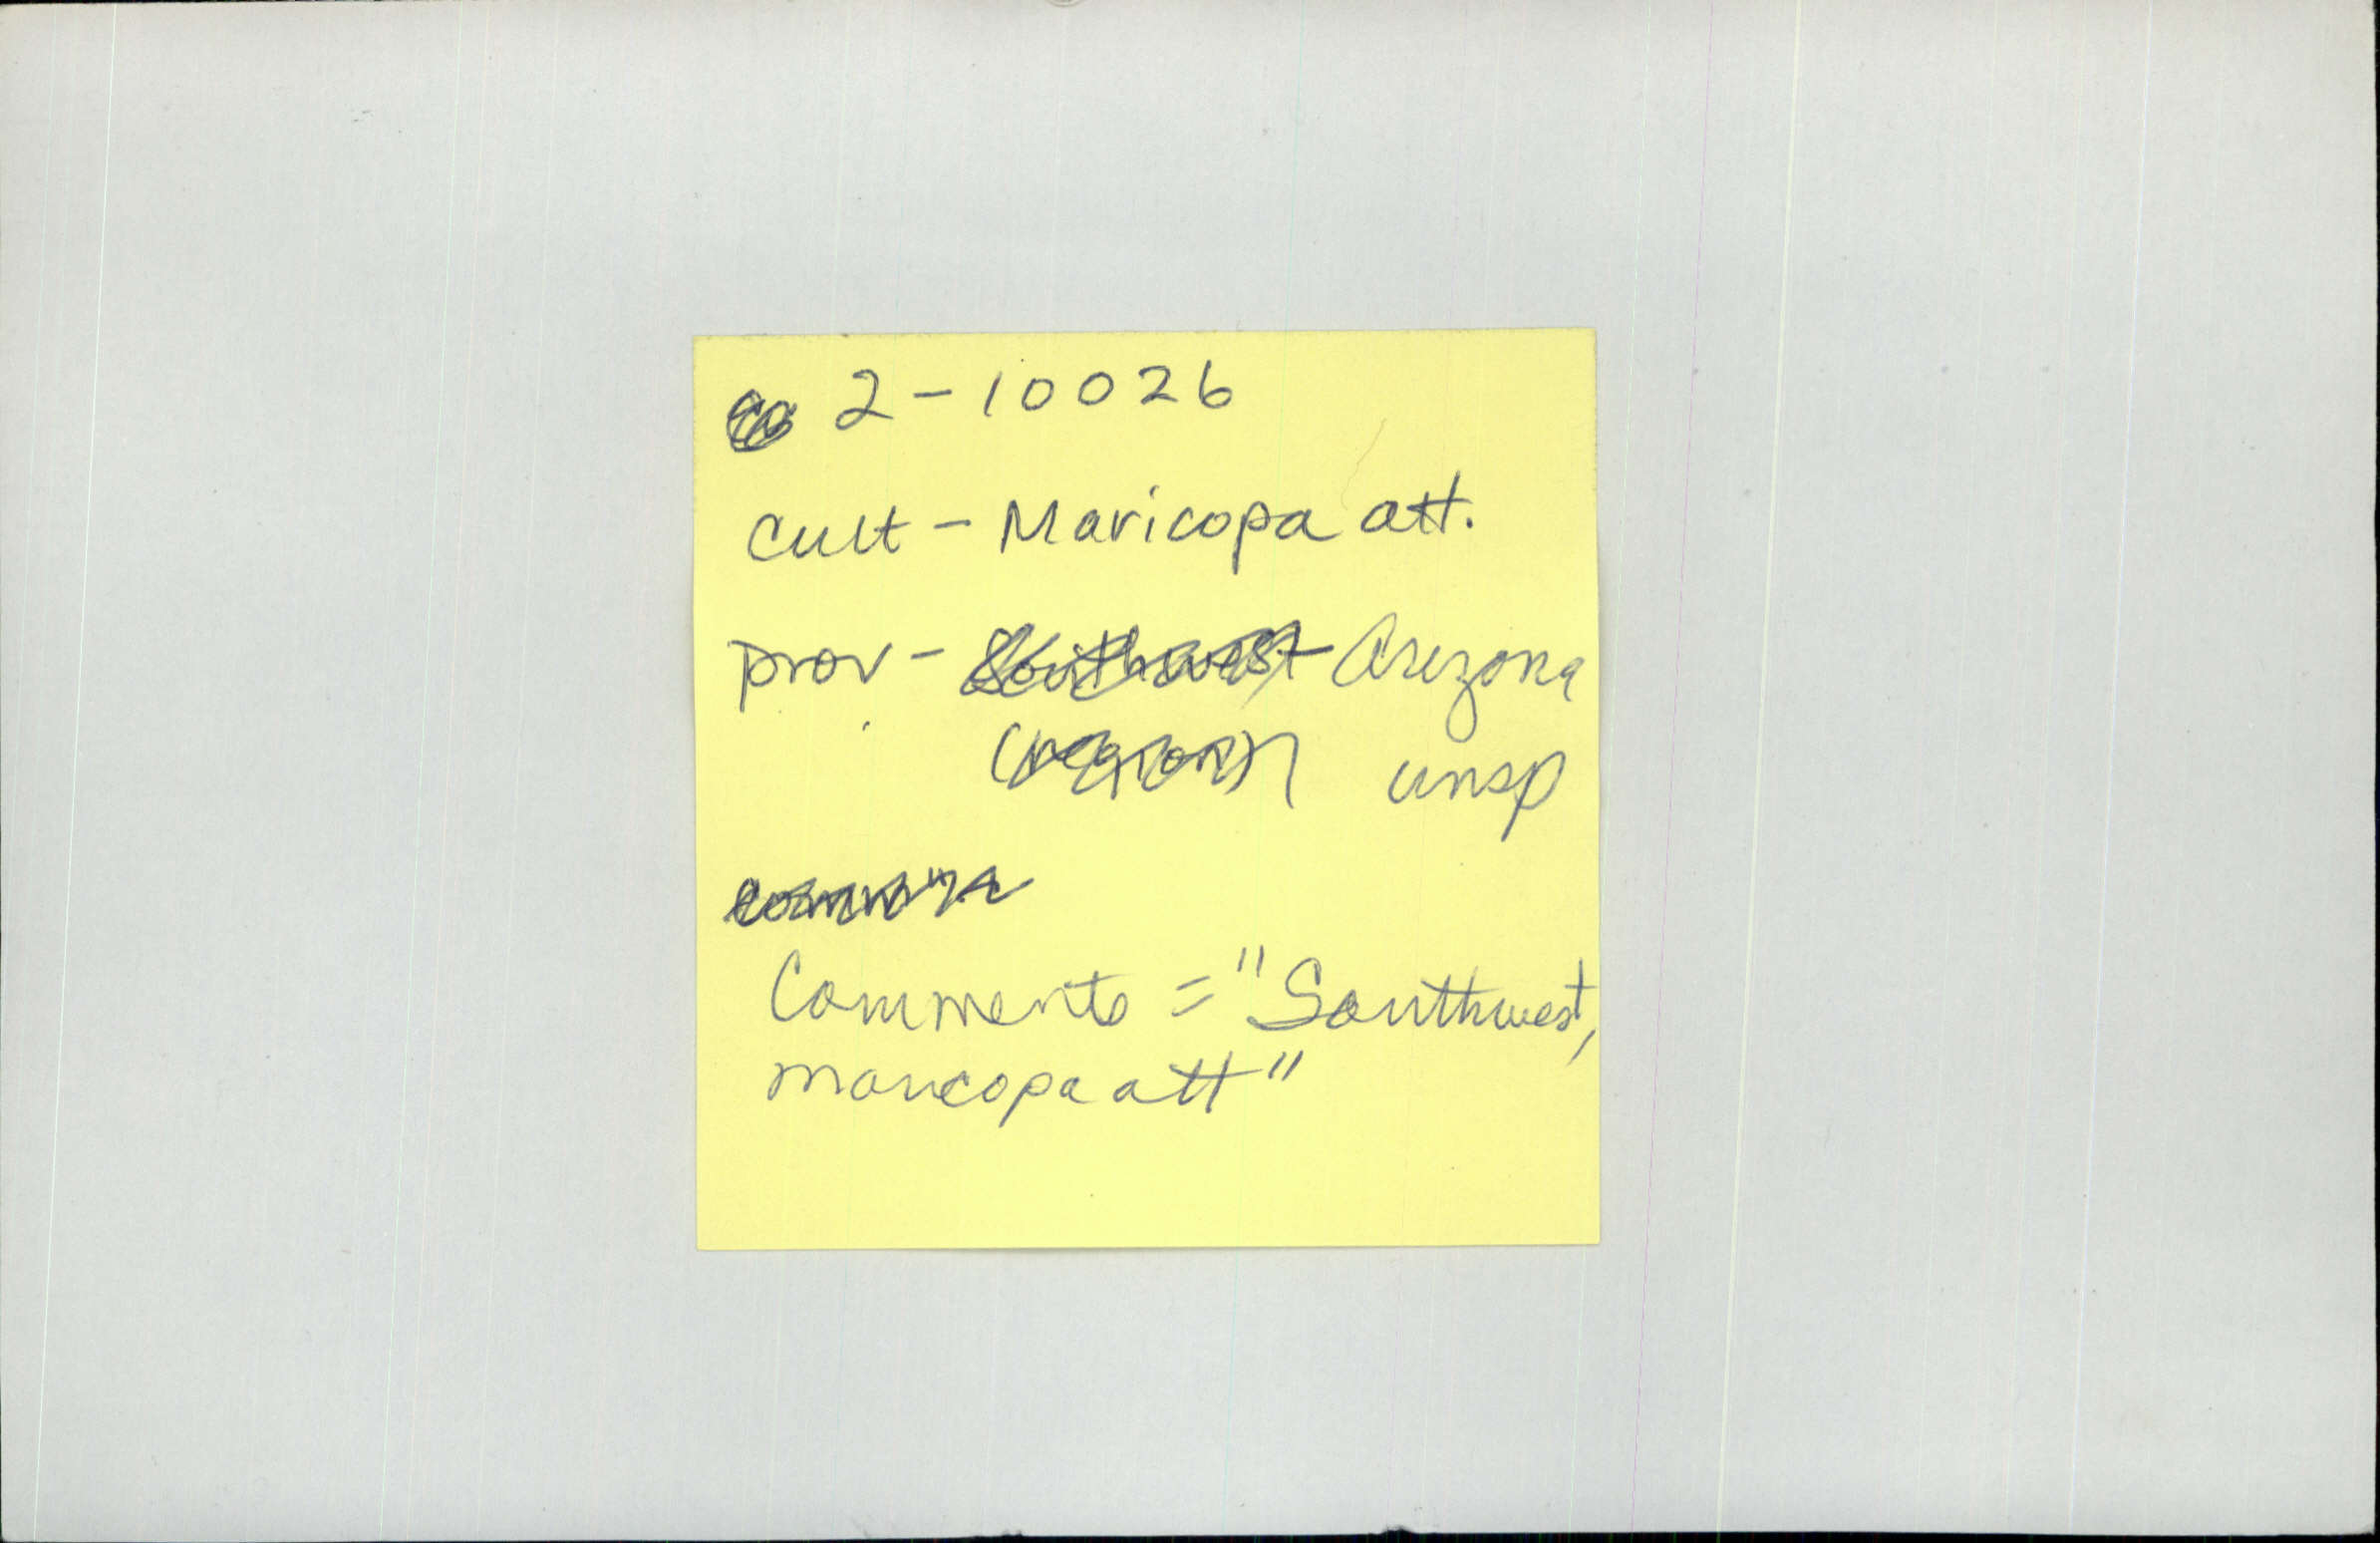 2-10026
cult - Maricopa att.
prov - Southwest Arizona
(region) unsp
Comments = "Southwest,
maricopa att"